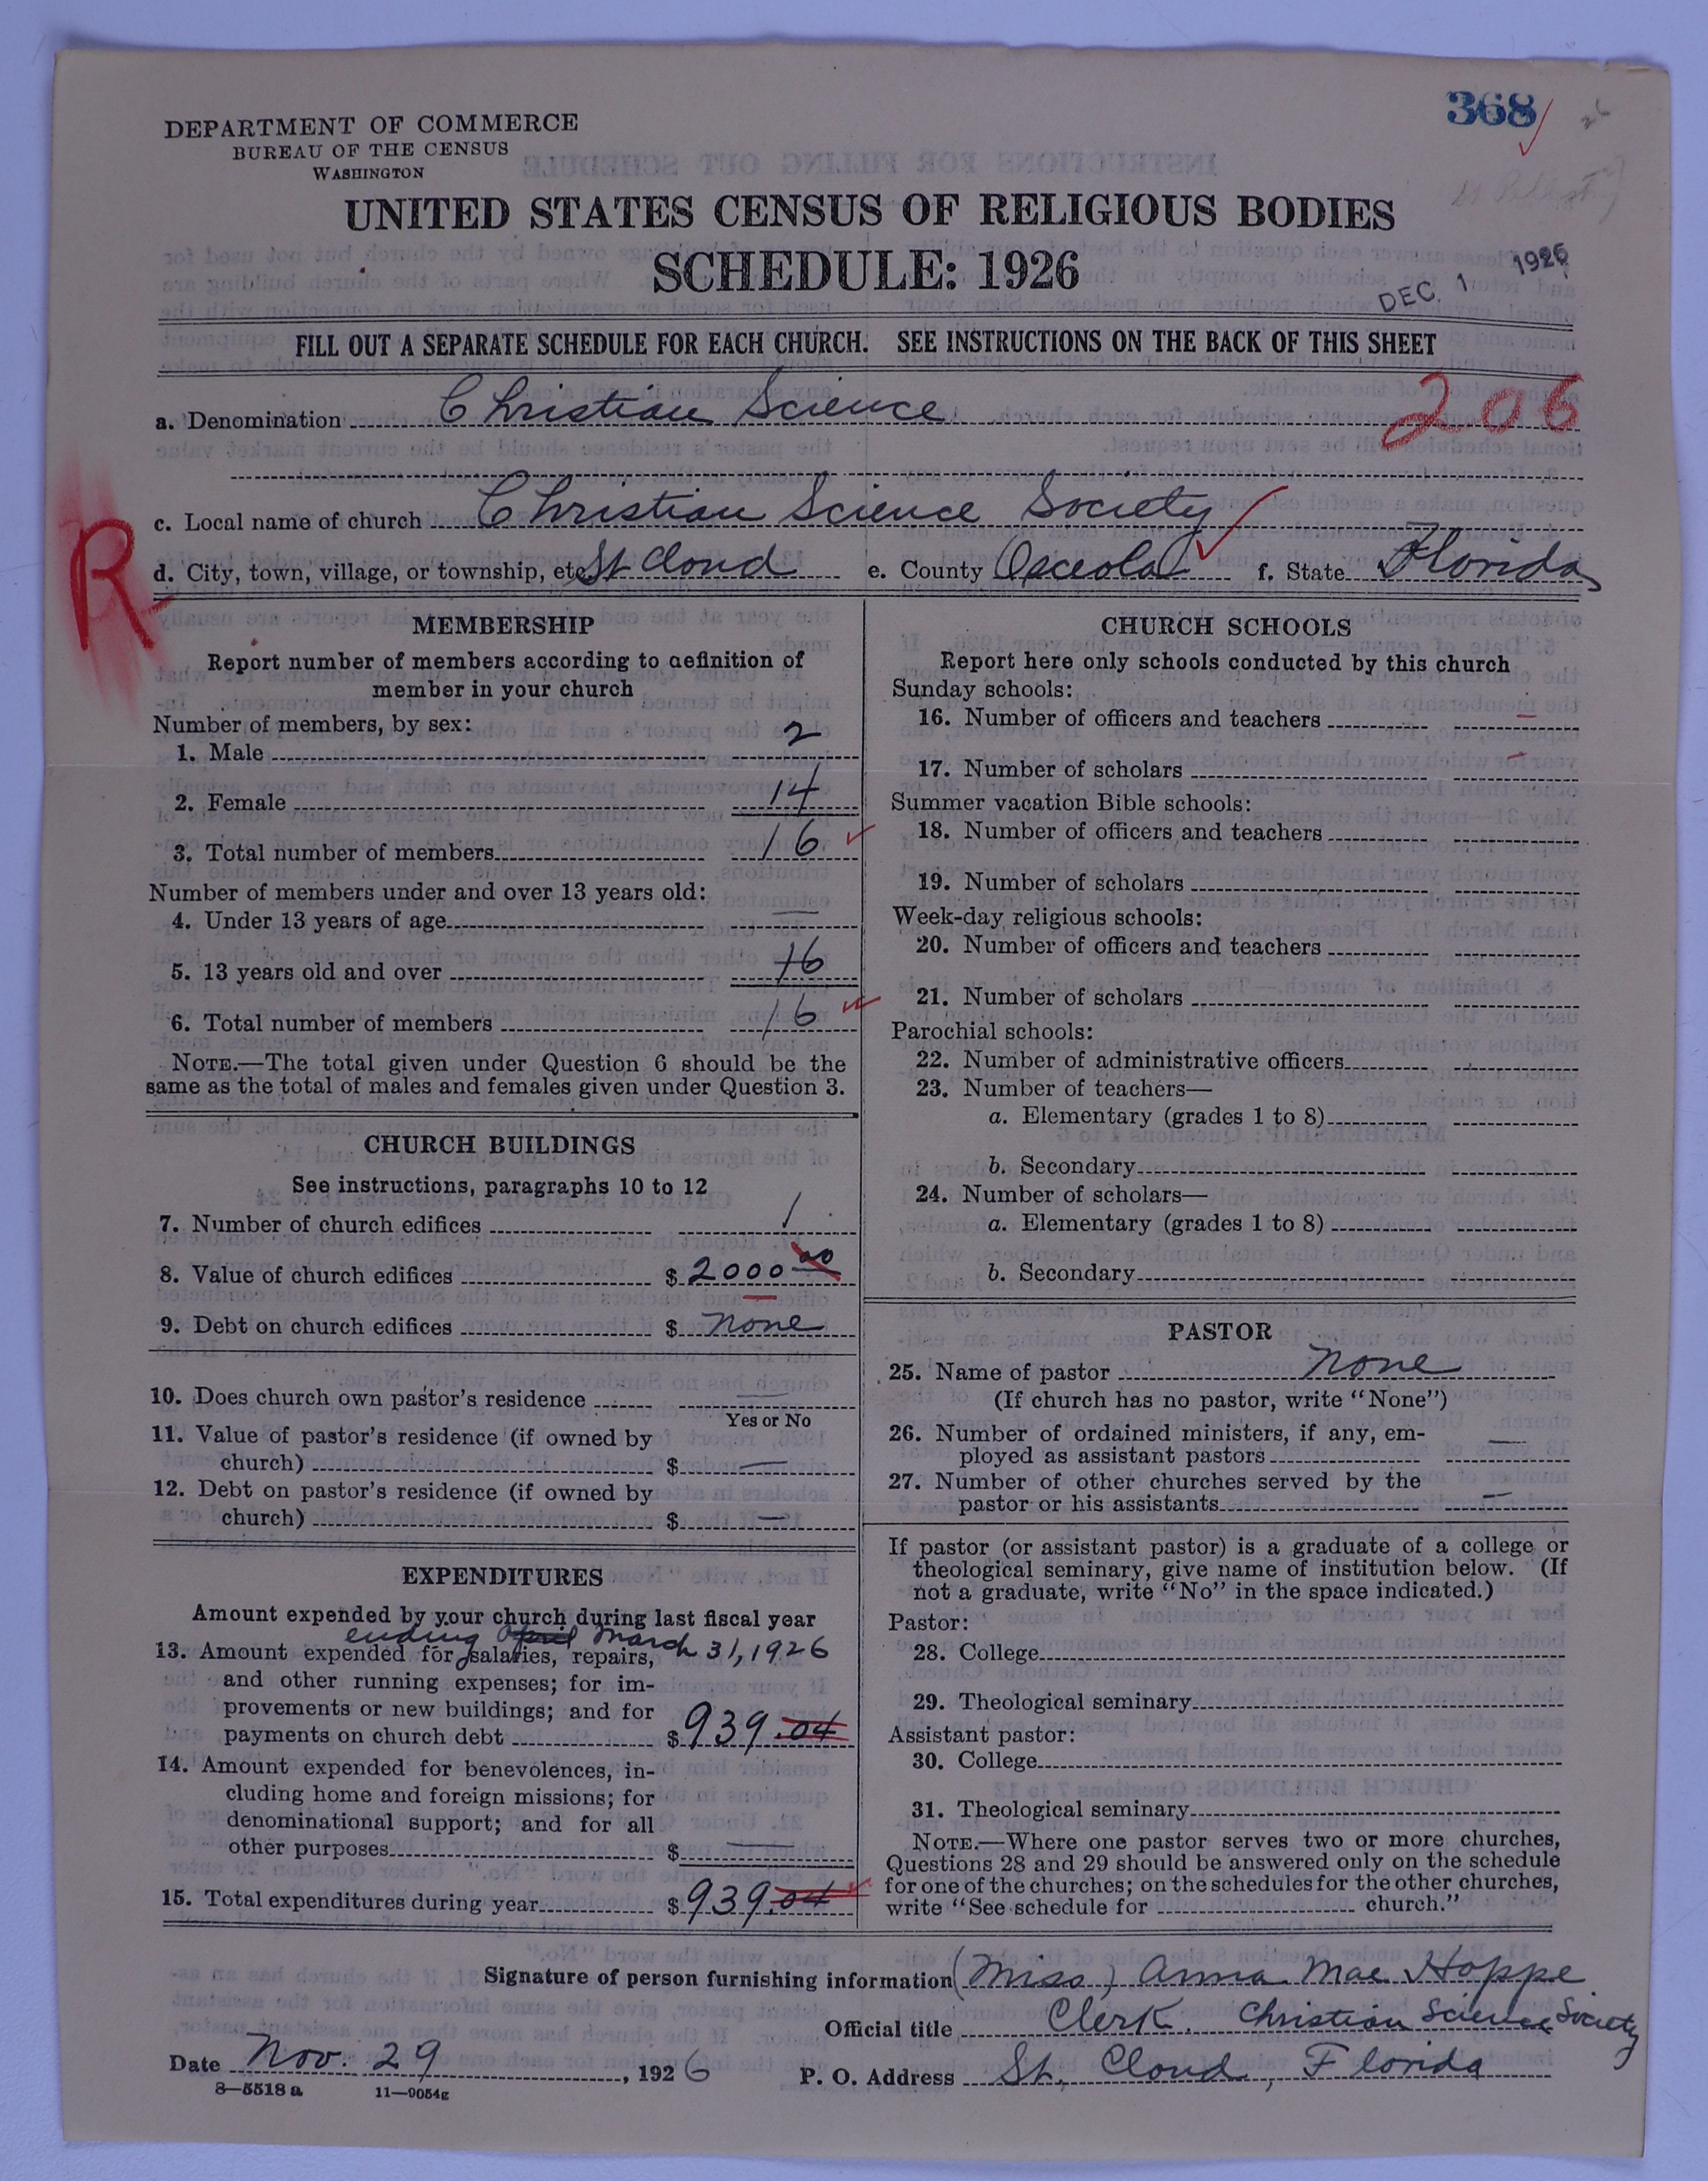 368
DEPARTMENT OF COMMERCE
BUREAU OF THE CENSUS
WASHINGTON
UNITED STATES CENSUS OF RELIGIOUS BODIES
SCHEDULE: 1926
DEC. 1 1926
FILL OUT A SEPARATE SCHEDULE FOR EACH CHURCH. SEE INSTRUCTIONS ON THE BACK OF THIS SHEET
206
a. Denomination Christian Science
c. Local name of church Christian Science Society
R
d. City, town, village, or township, etc. St Cloud e. County Osceola f. State Florida
MEMBERSHIP
Report number of members according to definition of
member in your church
Number of members, by sex:
1. Male 2
2. Female 14
3. Total number of members 16
Number of members under and over 13 years old:
4. Under 13 years of age —
5. 13 years old and over 16
6. Total number of members 16
NOTE.—The total given under Question 6 should be the
same as the total of males and females given under Question 3.
CHURCH BUILDINGS
See instructions, paragraphs 10 to 12
7. Number of church edifices 1
8. Value of church edifices $ 2000 00
9. Debt on church edifices $ none
10. Does church own pastor's residence —
Yes or No
11. Value of pastor's residence (if owned by
church) $ —
12. Debt on pastor's residence (if owned by
church) $ —
EXPENDITURES
Amount expended by your church during last fiscal year
ending April March 31, 1926
13. Amount expended for salaries, repairs,
and other running expenses; for im-
provements or new buildings; and for
payments on church debt $ 939.04
14. Amount expended for benevolences, in-
cluding home and foreign missions; for
denominational support; and for all
other purposes $ —
15. Total expenditures during year $ 939.04
CHURCH SCHOOLS
Report here only schools conducted by this church
Sunday schools:
16. Number of officers and teachers –
17. Number of scholars –
Summer vacation Bible schools:
18. Number of officers and teachers
19. Number of scholars
Week-day religious schools:
20. Number of officers and teachers
21. Number of scholars
Parochial schools:
22. Number of administrative officers
23. Number of teachers—
a. Elementary (grades 1 to 8)
b. Secondary
24. Number of scholars—
a. Elementary (grades 1 to 8)
b. Secondary
PASTOR
25. Name of pastor none
(If church has no pastor, write "None")
26. Number of ordained ministers, if any, em-
ployed as assistant pastors —
27. Number of other churches served by the
pastor or his assistants —
If pastor (or assistant pastor) is a graduate of a college or
theological seminary, give name of institution below. (If
not a graduate, write "No" in the space indicated.)
Pastor:
28. College
29. Theological seminary
Assistant pastor:
30. College
31. Theological seminary
NOTE.—Where one pastor serves two or more churches,
Questions 28 and 29 should be answered only on the schedule
for one of the churches; on the schedules for the other churches,
write "See schedule for church."
Signature of person furnishing information (Miss) Anna Mae Hoppe
Official title Clerk. Christian Science Society
Date Nov. 29, 1926 P. O. Address St. Cloud, Florida
8—5518 a 11—9054g